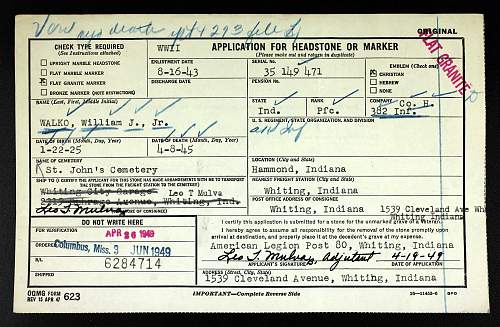 ORIGINAL
CHECK TYPE REQUIRED
(See Instructions attached)
UPRIGHT MARBLE HEADSTONE
FLAT MARBLE MARKER
X FLAT GRANITE MARKER
BRONZE MARKER (NOTE RESTRICTIONS)
WWII
APPLICATION FOR HEADSTONE OR MARKER
(Please make out and return in duplicate)
ENLISTMENT DATE
8-16-43
SERIAL No.
35 149 471
EMBLEM (Check one)
X CHRISTIAN
HEBREW
NONE
FLAT GRANITE
DISCHARGE DATE
PENSION No.
NAME (Last, First, Middle Initial)
WALKO, William J., Jr.
STATE
Ind.
RANK
Pfc.
COMPANY
Co. H.
382 Inf.
U. S. REGIMENT, STATE ORGANIZATION, AND DIVISION
DATE OF BIRTH (Month, Day, Year)
1-22-25
DATE OF DEATH (Month, Day, Year)
4-8-45
NAME OF CEMETERY
St. John's Cemetery
LOCATION (City and State)
Hammond, Indiana
SHIP TO (I CERTIFY THE APPLICANT FOR THIS STONE HAS MADE ARRANGEMENTS WITH ME TO TRANSPORT THE STONE FROM THE FREIGHT STATION TO THE CEMETERY)
Whiting City Garage Leo T Mulva
NEAREST FREIGHT STATION (City and State)
Whiting, Indiana
Whiting, Ind.
Leo T. Mulva
Whiting, Indiana 1539 Cleveland Ave
Whiting Indiana
DO NOT WRITE HERE
FOR VERIFICATION
APR 26 1949
ORDERED
Columbus, Miss. 3 JUN 1949
6284714
I certify this application is submitted for a stone for the unmarked grave of a veteran.
I hereby agree to assume all responsibility for the removal of the stone promptly upon arrival at destination, and properly place it at the decedent's grave at my expense.
American Legion Post 80, Whiting, Indiana
Leo T. Mulva, Adjutant 4-19-49
APPLICANT'S SIGNATURE
DATE
ADDRESS (Street, City, State)
1539 Cleveland Avenue, Whiting, Indiana
OQMG FORM
REV 15 APR 47 623
IMPORTANT—Complete Reverse Side
GPO